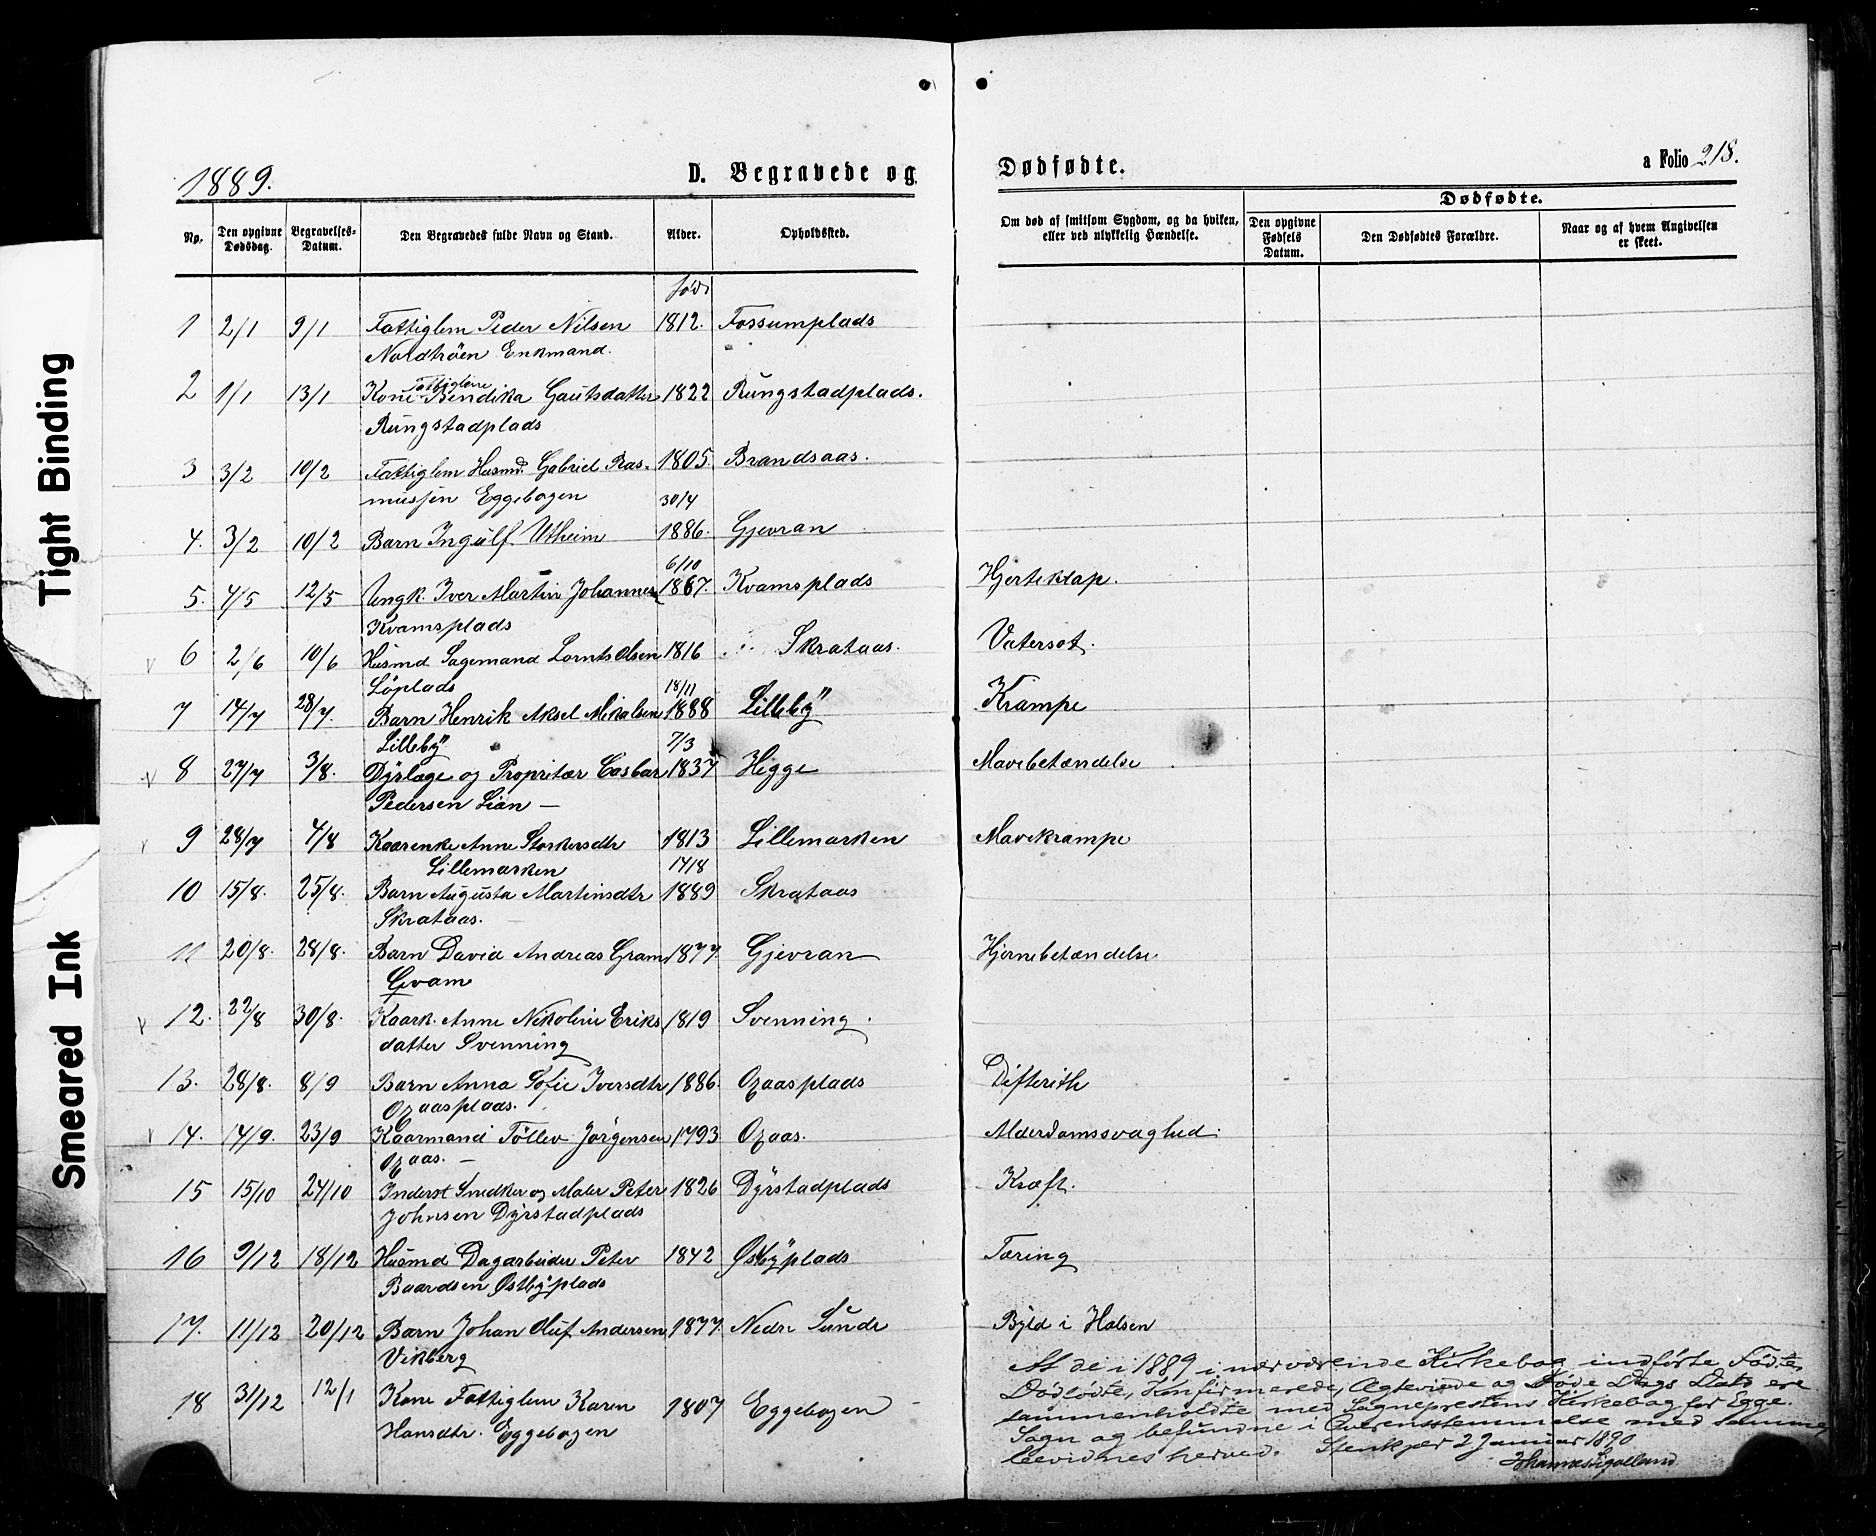 1889.
D. Begravede og Dødfødte.
a Folio 218.
Tight Binding
Smeared Ink
No.
Den opgivne Dødsdag.
Begravelses-Datum.
Den Begravedes fulde Navn og Stand.
Alder.
Opholdssted.
Om død af smitsom Sygdom, og da hvilken, eller ved ulykkelig Hændelse.
Dødfødte.
Den opgivne Fødsels Datum.
Den Dødfødtes Forældre.
Naar og af hvem Angivelsen er skeet.
født
1 2/1 9/1 Fattiglem Peder Nilsen 1812. Fossumplads
Nordtrøen Enkmand.
2 1/1 13/1 Kone Fattiglem Bendika Gautsdatter 1822 Rungstadplads.
Rungstadplads
3 3/2 10/2 Fattiglem Husmd. Gabriel Ras- 1805. Brandsaas.
mussen Eggebogen
4. 3/2 10/2 Barn Ingulf Utheim 30/4 1886. Gjevran
5. 4/5 12/5 Ungk. Iver Martin Johannes 6/10 1867. Kvamsplads Hjerteklap.
Kvamsplads
6 2/6 10/6 Husmd Sagemand Lornts Olsen 1816 Skrataas. Vatersot.
Løplads
7 14/7 28/7. Barn Henrik Aksel Mikalsen 18/11 1888 Lilleby Krampe
Lilleby
8 27/7 3/8. Dyrlæge og Propritær Casbar 7/3 1837 Higge Mavebetændelse
Pedersen Lian —
9 28/7 4/8 Kaarenke Anne Storkersdtr 1813 Lillemarken Mavekrampe
Lillemarken
10 15/8. 25/8. Barn Augusta Martinsdtr 14/8 1889 Skrataas
Skrataas.
11 20/8. 28/8. Barn David Andreas Gram 1877. Gjevran Hjernebetændelse
Qvam
12. 22/8 30/8. Kaark. Anne Nikoline Eriks 1819 Svenning.
datter Svenning
13. 28/8. 8/9 Barn Anna Sofie Iversdtr 1886. Ogaasplads Difterith
Ogaasplads.
14. 14/9. 23/9 Kaarmand Tøllev Jørgensen 1793 Ogaas. Alderdomssvaghed.
Ogaas. —
15 15/10 24/10 Inderst Snedker og Maler Peter 1826 Dyrstadplads Kræft.
Johnsen Dyrstadplads
16 9/12 18/12 Husmd Dagarbeider Peter 1842 Østbyplads Tæring
Baardsen Østbyplads
17. 11/12 20/12 Barn Johan Oluf Andersen 1877. Nedre Sunde Byld i Halsen
Vikberg
18 31/12 12/1 Kone Fattiglem Karen 1807 Eggebogen
Hansdtr. Eggebogen
At de i 1889 i nærværende Kirkebog indførte Fødte,
Dødfødte, Konfirmerede, Ægteviede og Døde Dags Dato ere
sammenholdte med Sogneprestens Kirkebog for Egge
Sogn og befundne i Overensstemmelse med samme
bevidnes herved. Stenkjær 2 Januar 1890